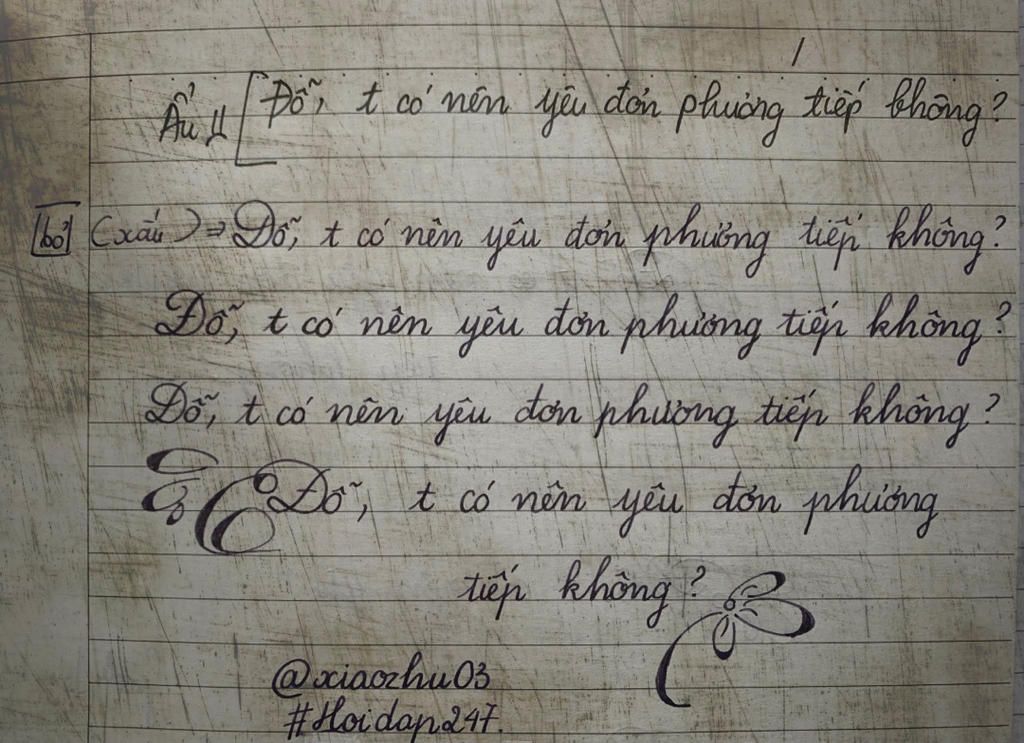 Ẩu [Đỗ, t có nên yêu đơn phương tiếp không?
bỏ (xấu) => Đỗ, t có nên yêu đơn phương tiếp không?
Đỗ, t có nên yêu đơn phương tiếp không?
Đỗ, t có nên yêu đơn phương tiếp không?
Đỗ, t có nên yêu đơn phương
tiếp không?
@xiaozhu03
#Hoidap247.